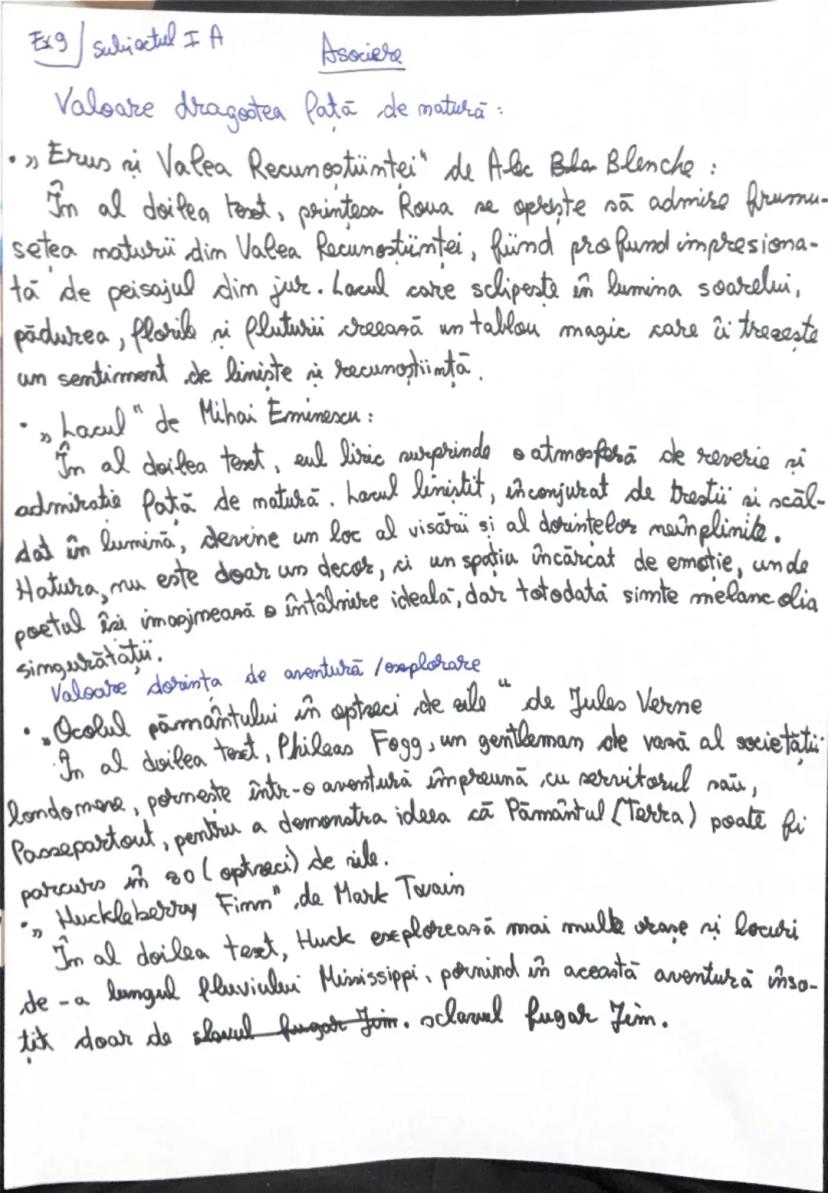 Ex 9 / subiectul I A
Asociere
Valoare dragostea față de natură:
• „Erus și Valea Recunoștiinței" de Alec Bla Blenche:
În al doilea text, prințesa Roua se oprește să admire frumu-
setea naturii din Valea Recunoștiinței, fiind profund impresiona-
tă de peisajul din jur. Lacul care sclipește în lumina soarelui,
pădurea, florile și fluturii creează un tablou magic care îi trezește
un sentiment de liniște și recunoștiință.
• „Lacul" de Mihai Eminescu:
În al doilea text, eul liric surprinde o atmosferă de reverie și
admiratie față de natură. Lacul liniștit, înconjurat de trestii și scăl-
dat în lumină, devine un loc al visării și al dorințelor neînplinite.
Natura, nu este doar un decor, ci un spațiu încărcat de emoție, unde
poetul își imaginează o întâlnire ideală, dar totodată simte melancolia
singurătății.
Valoare dorința de aventură / explorare
• „Ocolul pământului în optzeci de zile" de Jules Verne
În al doilea text, Phileas Fogg, un gentleman de vază al societății
londoneze, pornește într-o aventură împreună cu servitorul său,
Passepartout, pentru a demonstra ideea că Pământul (Terra) poate fi
parcurs în 80 (optzeci) de zile.
• „Huckleberry Finn" de Mark Twain
În al doilea text, Huck explorează mai multe orașe și locuri
de-a lungul fluviului Mississippi, pornind în această aventură înso-
țit doar de slavul fugar Jim. sclavul fugar Jim.